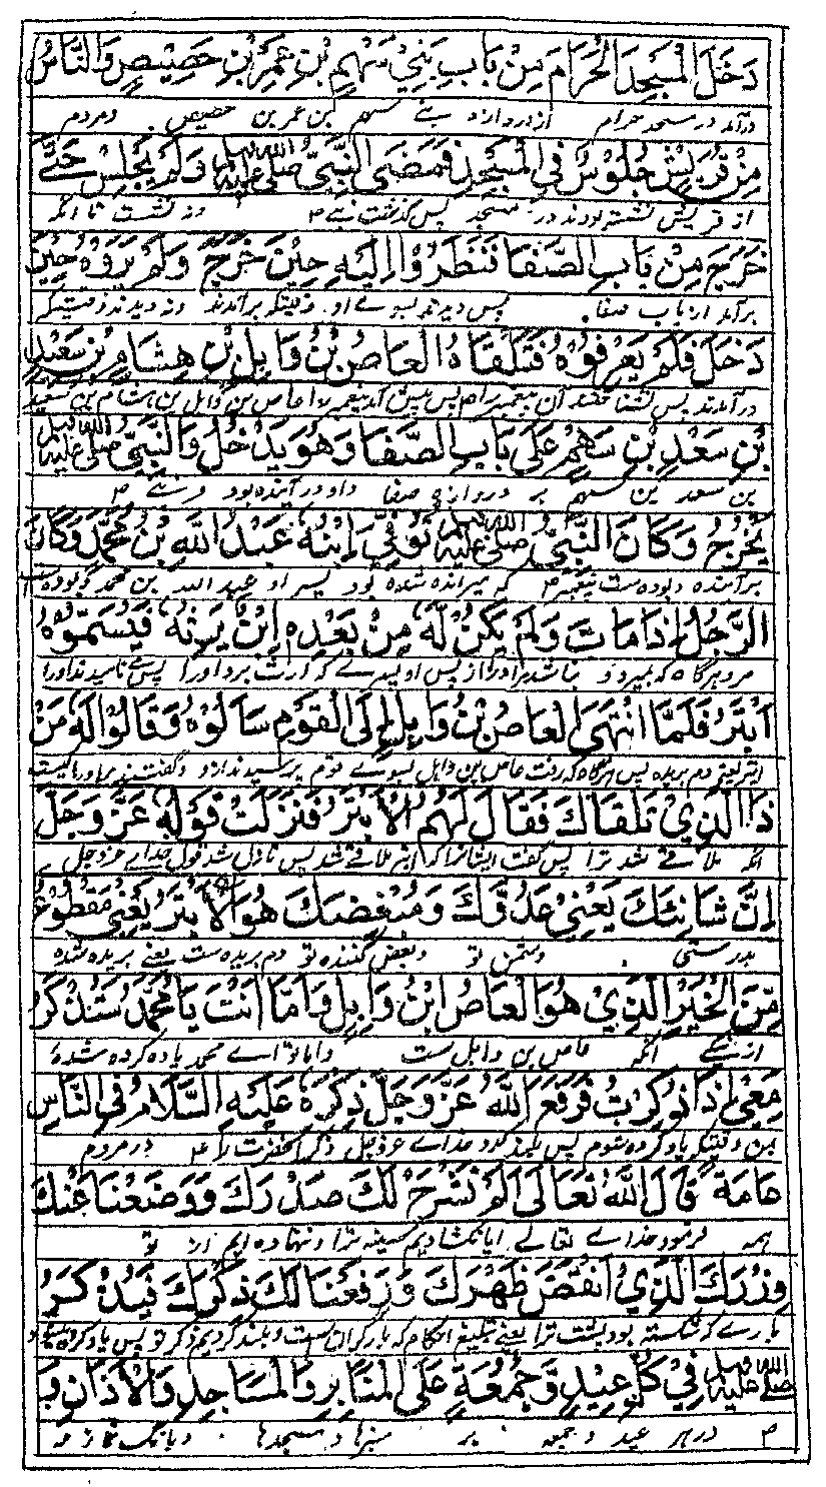 دَخَلَ الْمَسْجِدَ الْحَرَامَ مِنْ بَابِ بَنِيْ سَهْمِ بْنِ عَمْرِ بْنِ حَصِيْصٍ وَالنَّاسُ
درآمد در مسجد حرام از دروازه بنے سهم بن عمر بن حصیص ومردم
مِنْ قُرَيْشٍ جُلُوْسٌ فِي الْمَسْجِدِ فَمَضَى النَّبِيُّ صلى الله عليه وسلم وَلَمْ يَجْلِسْ حَتّٰى
از قریش نشسته بودند در مسجد پس گذشت نبے ص ونه نشست تا انکه
خَرَجَ مِنْ بَابِ الصَّفَا فَنَظَرُوْا اِلَيْهِ حِيْنَ خَرَجَ وَلَمْ يَرَوْهُ حِيْنَ
برآمد از باب صفا پس دیدند بسوے او وقتیکه برآمدند ونه دیدند وقتیکه
دَخَلَ فَلَمْ يَعْرِفُوْهُ فَتَلَقَّاهُ الْعَاصُ بْنُ وَابِلِ بْنِ هِشَامِ بْنِ سَعِيْدِ
درآمدند پس نشناختند آن پیغمبر را ص پس پیش آمد پیغمبر را عاص بن وابل بن هشام بن سعید
بْنِ سَعْدِ بْنِ سَهْمٍ عَلٰى بَابِ الصَّفَا وَهُوَ يَدْخُلُ وَالنَّبِيُّ صلى الله عليه وسلم
بن سعد بن سهم بر دروازه صفا واو درآینده بود ونبے ص
يَخْرُجُ وَكَانَ النَّبِيُّ صلى الله عليه وسلم تُوُفِّيَ اِبْنُهُ عَبْدُ اللهِ بْنُ مُحَمَّدٍ وَكَانَ
برآینده وبوده ست پیغمبر ص که میرانده شده بود پسر او عبد الله بن محمد وبوده ست
الرَّجُلُ اِذَا مَاتَ وَلَمْ يَكُنْ لَهُ مِنْ بَعْدِهِ اِبْنٌ يَرِثُهُ فَيُسَمُّوْهُ
مرد هرگاه که بمیرد و نباشد مر اورا از پس او پسرے که ارث برد اورا پس مے نامیدند اورا
اَبْتَرُ فَلَمَّا انْتَهَى الْعَاصُ بْنُ وَابِلٍ اِلَى الْقَوْمِ سَاَلُوْهُ وَقَالُوْا لَهُ مَنْ
ابتر یعنی دم بریده پس هرگاه که رفت عاص بن وابل بسوے قوم پرسیدند ازو وگفتند مر اورا کیست
ذَا الَّذِيْ تَلَقَّاكَ فَقَالَ لَهُمُ الْاَبْتَرُ فَنَزَلَتْ قَوْلُهُ عَزَّ وَجَلَّ
انکه ملاقے شد ترا پس گفت ایشانرا که ابتر ملاقے شد پس نازل شد قول خداے عز وجل
اِنَّ شَانِئَكَ يَعْنِيْ عَدُوَّكَ وَمُبْغِضَكَ هُوَ الْاَبْتَرُ يَعْنِيْ مَقْطُوْعٌ
بدرستی دشمن تو وبغض کننده تو دم بریده ست یعنے بریده شده
مِنَ الْخَيْرِ الَّذِيْ هُوَ الْعَاصُ ابْنُ وَابِلٍ وَاَمَّا اَنْتَ يَا مُحَمَّدُ سَتُذْكَرُ
از نیکے انکه عاص بن وابل ست واما تو اے محمد یاد کرده شده
مَعِيْ اِذَا ذُكِرْتُ فَرَفَعَ اللهُ عَزَّ وَجَلَّ ذِكْرَهُ عَلَيْهِ السَّلَامُ فِي النَّاسِ
بمن وقتیکه یاد کرده شوم پس بلند کرد خداے عز وجل ذکر انحضرت را در مردم
عَامَةً قَالَ اللهُ تَعَالٰى اَلَمْ نَشْرَحْ لَكَ صَدْرَكَ وَوَضَعْنَا عَنْكَ
همه فرمود خداے تعالے ایا نکشادیم سینه ترا ونهاده ایم از تو
وِزْرَكَ الَّذِيْ اَنْقَضَ ظَهْرَكَ وَرَفَعْنَا لَكَ ذِكْرَكَ فَيُذْكَرُ
بارے که شکسته بود پشت ترا یعنے تبلیغ احکام که بار گران ست وبلند کردیم ذکر تو پس یاد کرده
صلى الله عليه وسلم فِيْ كُلِّ عِيْدٍ وَجُمُعَةٍ عَلَى الْمَنَابِرِ وَالْمَسَاجِدِ وَالْاَذَانِ وَ
ص در هر عید وجمعه بر منبرها ومسجدها وبانگ نماز